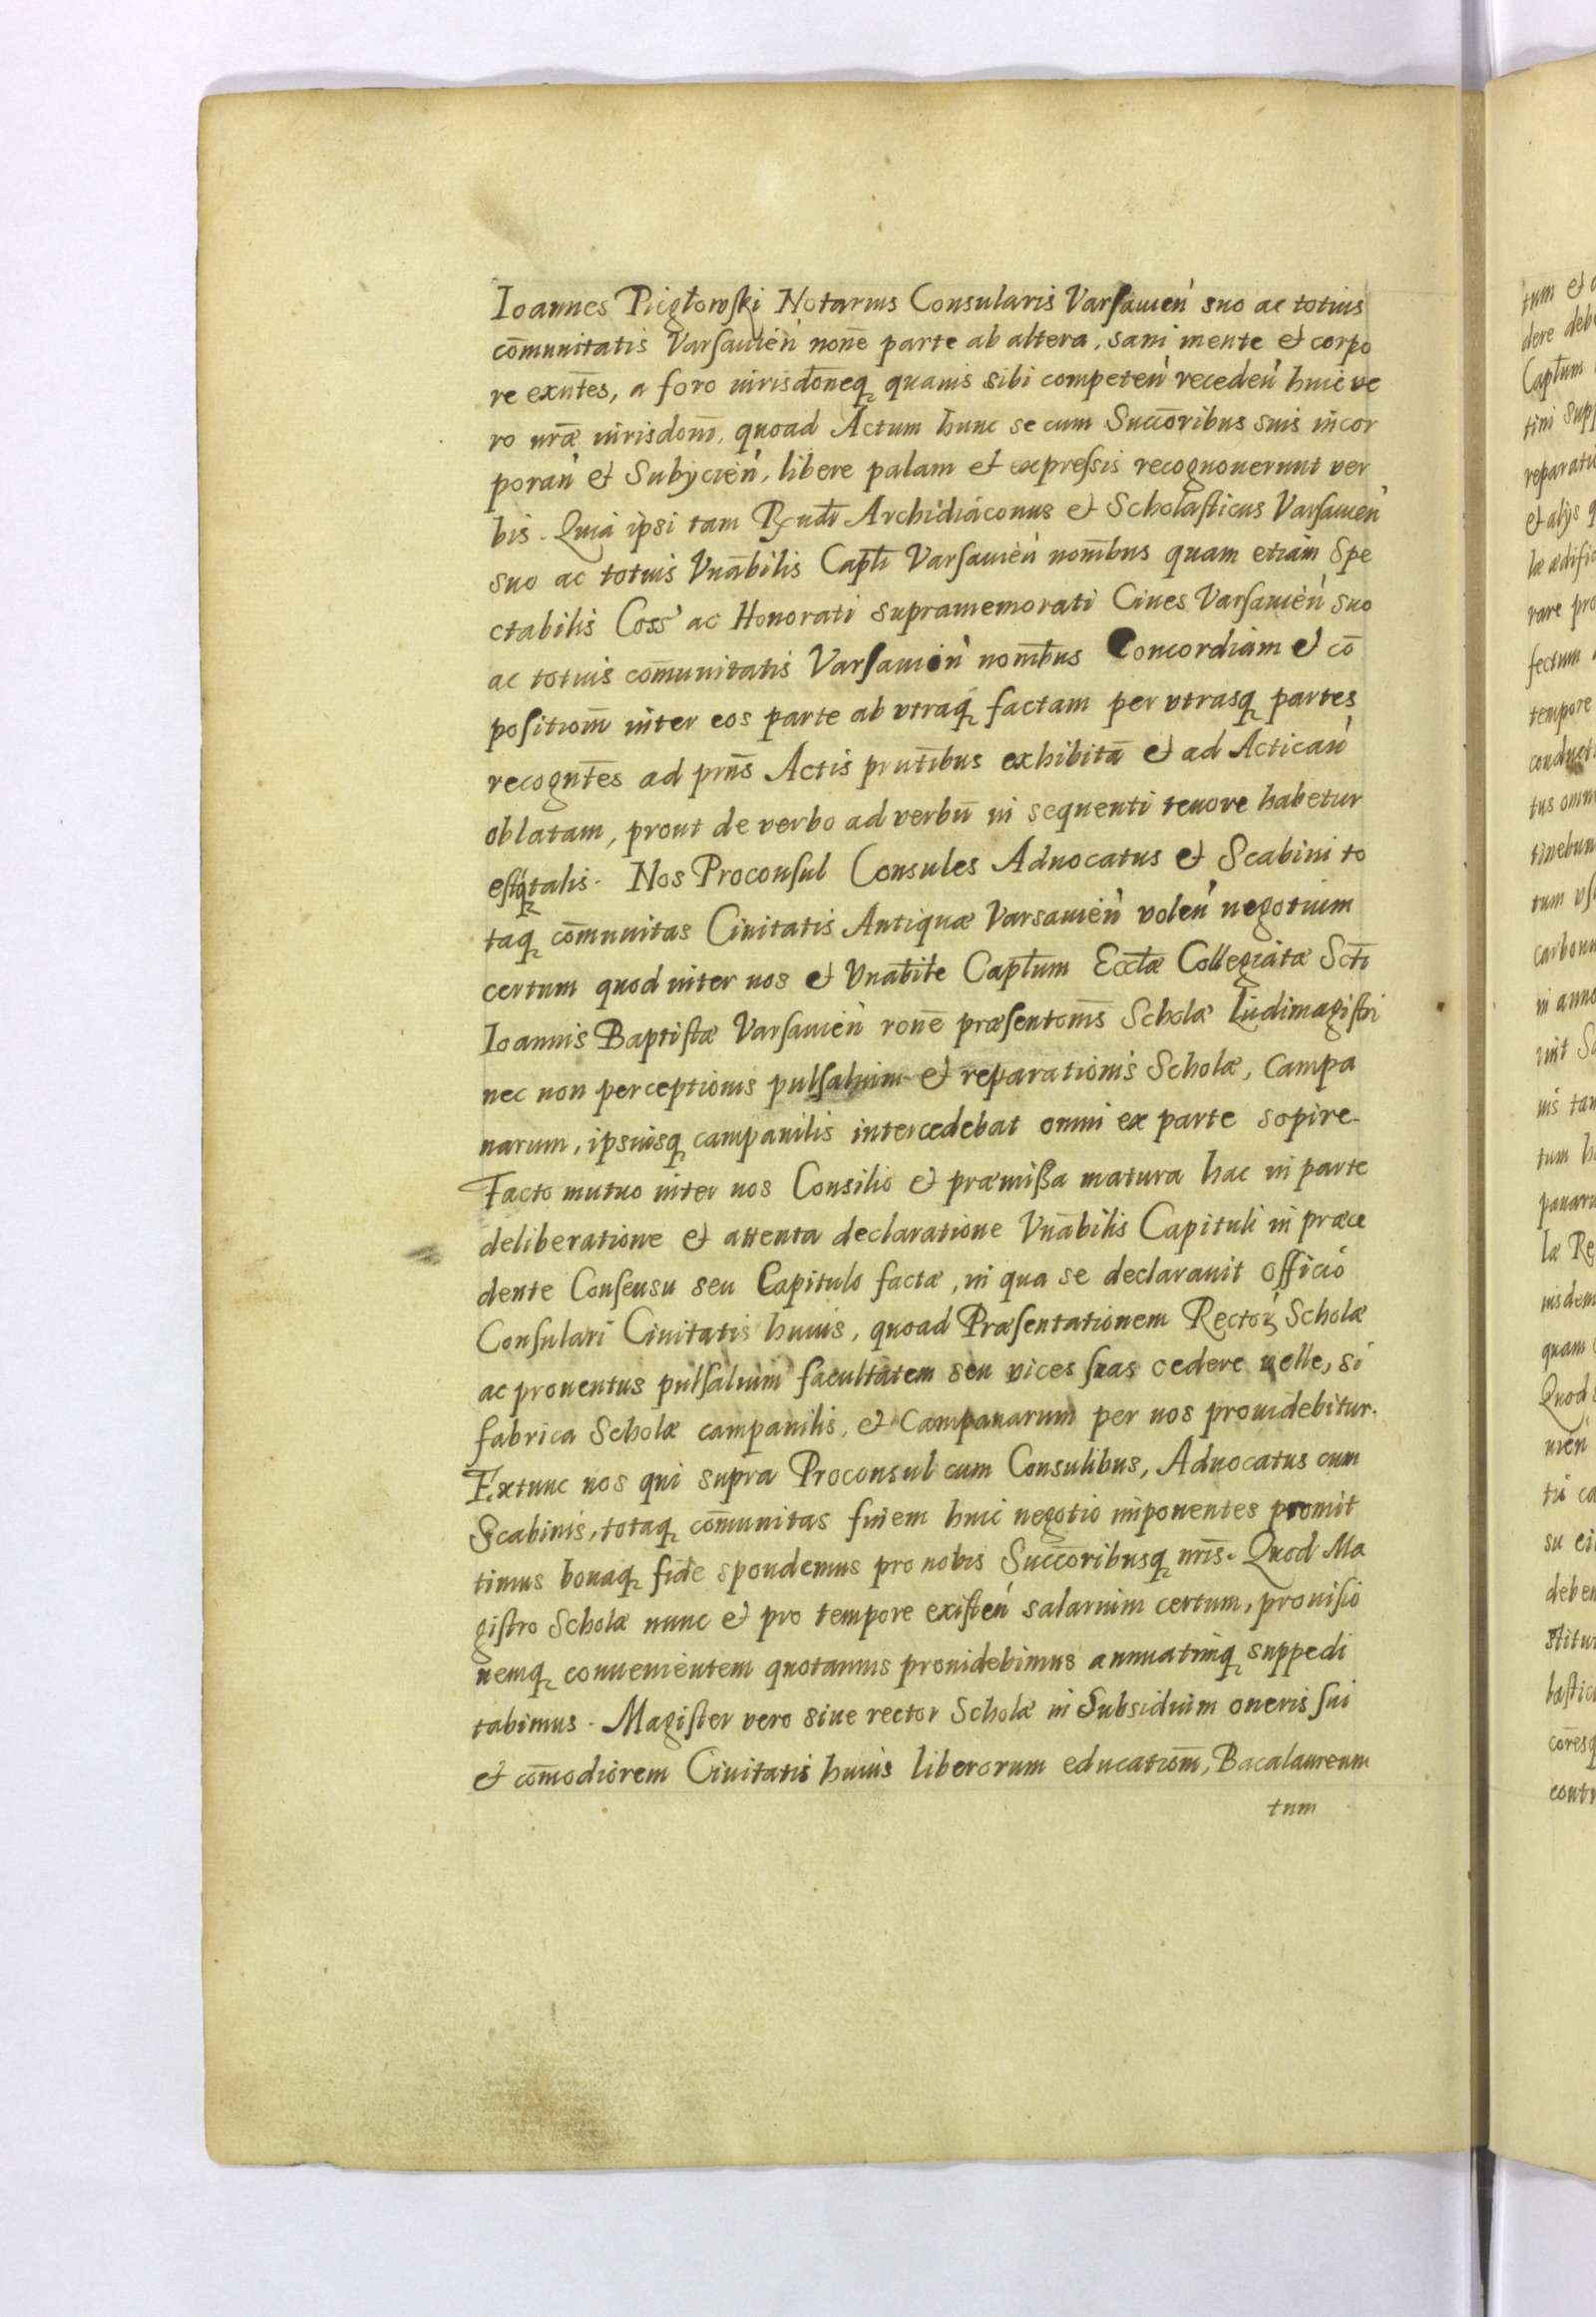 Ioannes Piegłowski Notarius Consularis Varsauień suo ac totius
com̄unitatis Varsauień noīe parte ab altera, sani mente et corpo
re exñtes, a foro iurisdōneq quauis sibi competeń recedeń huic ve
ro nrǣ iurisdom̄, quoad Actum hunc se cum Succōribus suis incor
porań et Subycień, libere palam et expressis recognouerunt ver
bis. Quia ipsi tam Rxndi Archidiaconus et Scholasticus Varsauień
suo ac totius Vnābilis Capłi Varsauień nom̄bus quam etiam Spe
ctabilis Coss' ac Honorati supramemorati Ciues Varsauień suo
ac totius com̄unitatis Varsauień nom̄bus Concordiam et cō
positiom̄ inter eos parte ab utraq factam per utrasq partes
recogñtes ad prñs Actis prñtibus exhibitā et ad Acticań
oblatam, prout de verbo ad verbū in sequenti tenore habetur
estq talis. Nos Proconsul Consules Aduocatus et Scabini to
taq com̄unitas Ciuitatis Antiquæ Varsauień voleń negotium
certum quod inter nos et Vnābile Capłum Eccłæ Collegiatæ Scti
Ioannis Baptistæ Varsauień ronē præsentom̄s Scholæ Ludimagistri
nec non perceptionis pulsalium et reparationis Scholæ, Campa
narum, ipsiusq campanilis intercedebat omni ex parte sopire.
Facto mutuo inter nos Consilio et præmissa matura hac in parte
deliberatione et attenta declaratione Vnābilis Capituli in præce
dente Consensu seu Capitulo factæ, in qua se declarauit officio
Consulari Ciuitatis huius, quoad Præsentationem Rectoꝝ Scholæ
ac prouentus pulsalium facultatem seu vices suas cedere uelle, si
fabrica Scholæ campanilis, et Campanarum per nos prouidebitur.
Extunc nos qui supra Proconsul cum Consulibus, Aduocatus cum
Scabinis, totaq com̄unitas finem huic negotio imponentes promit
timus bonaq fide spondemus pro nobis Succōribusq nrīs. Quod Ma
gistro Scholæ nunc et pro tempore existeń salarium certum, prouisio
nemq conuenientem quotannis prouidebimus annuatimq suppedi
tabimus. Magister vero siue rector Scholæ in Subsidium oneris sui
et com̄odiorem Ciuitatis huius liberorum educatiom̄, Bacalaureum
tum